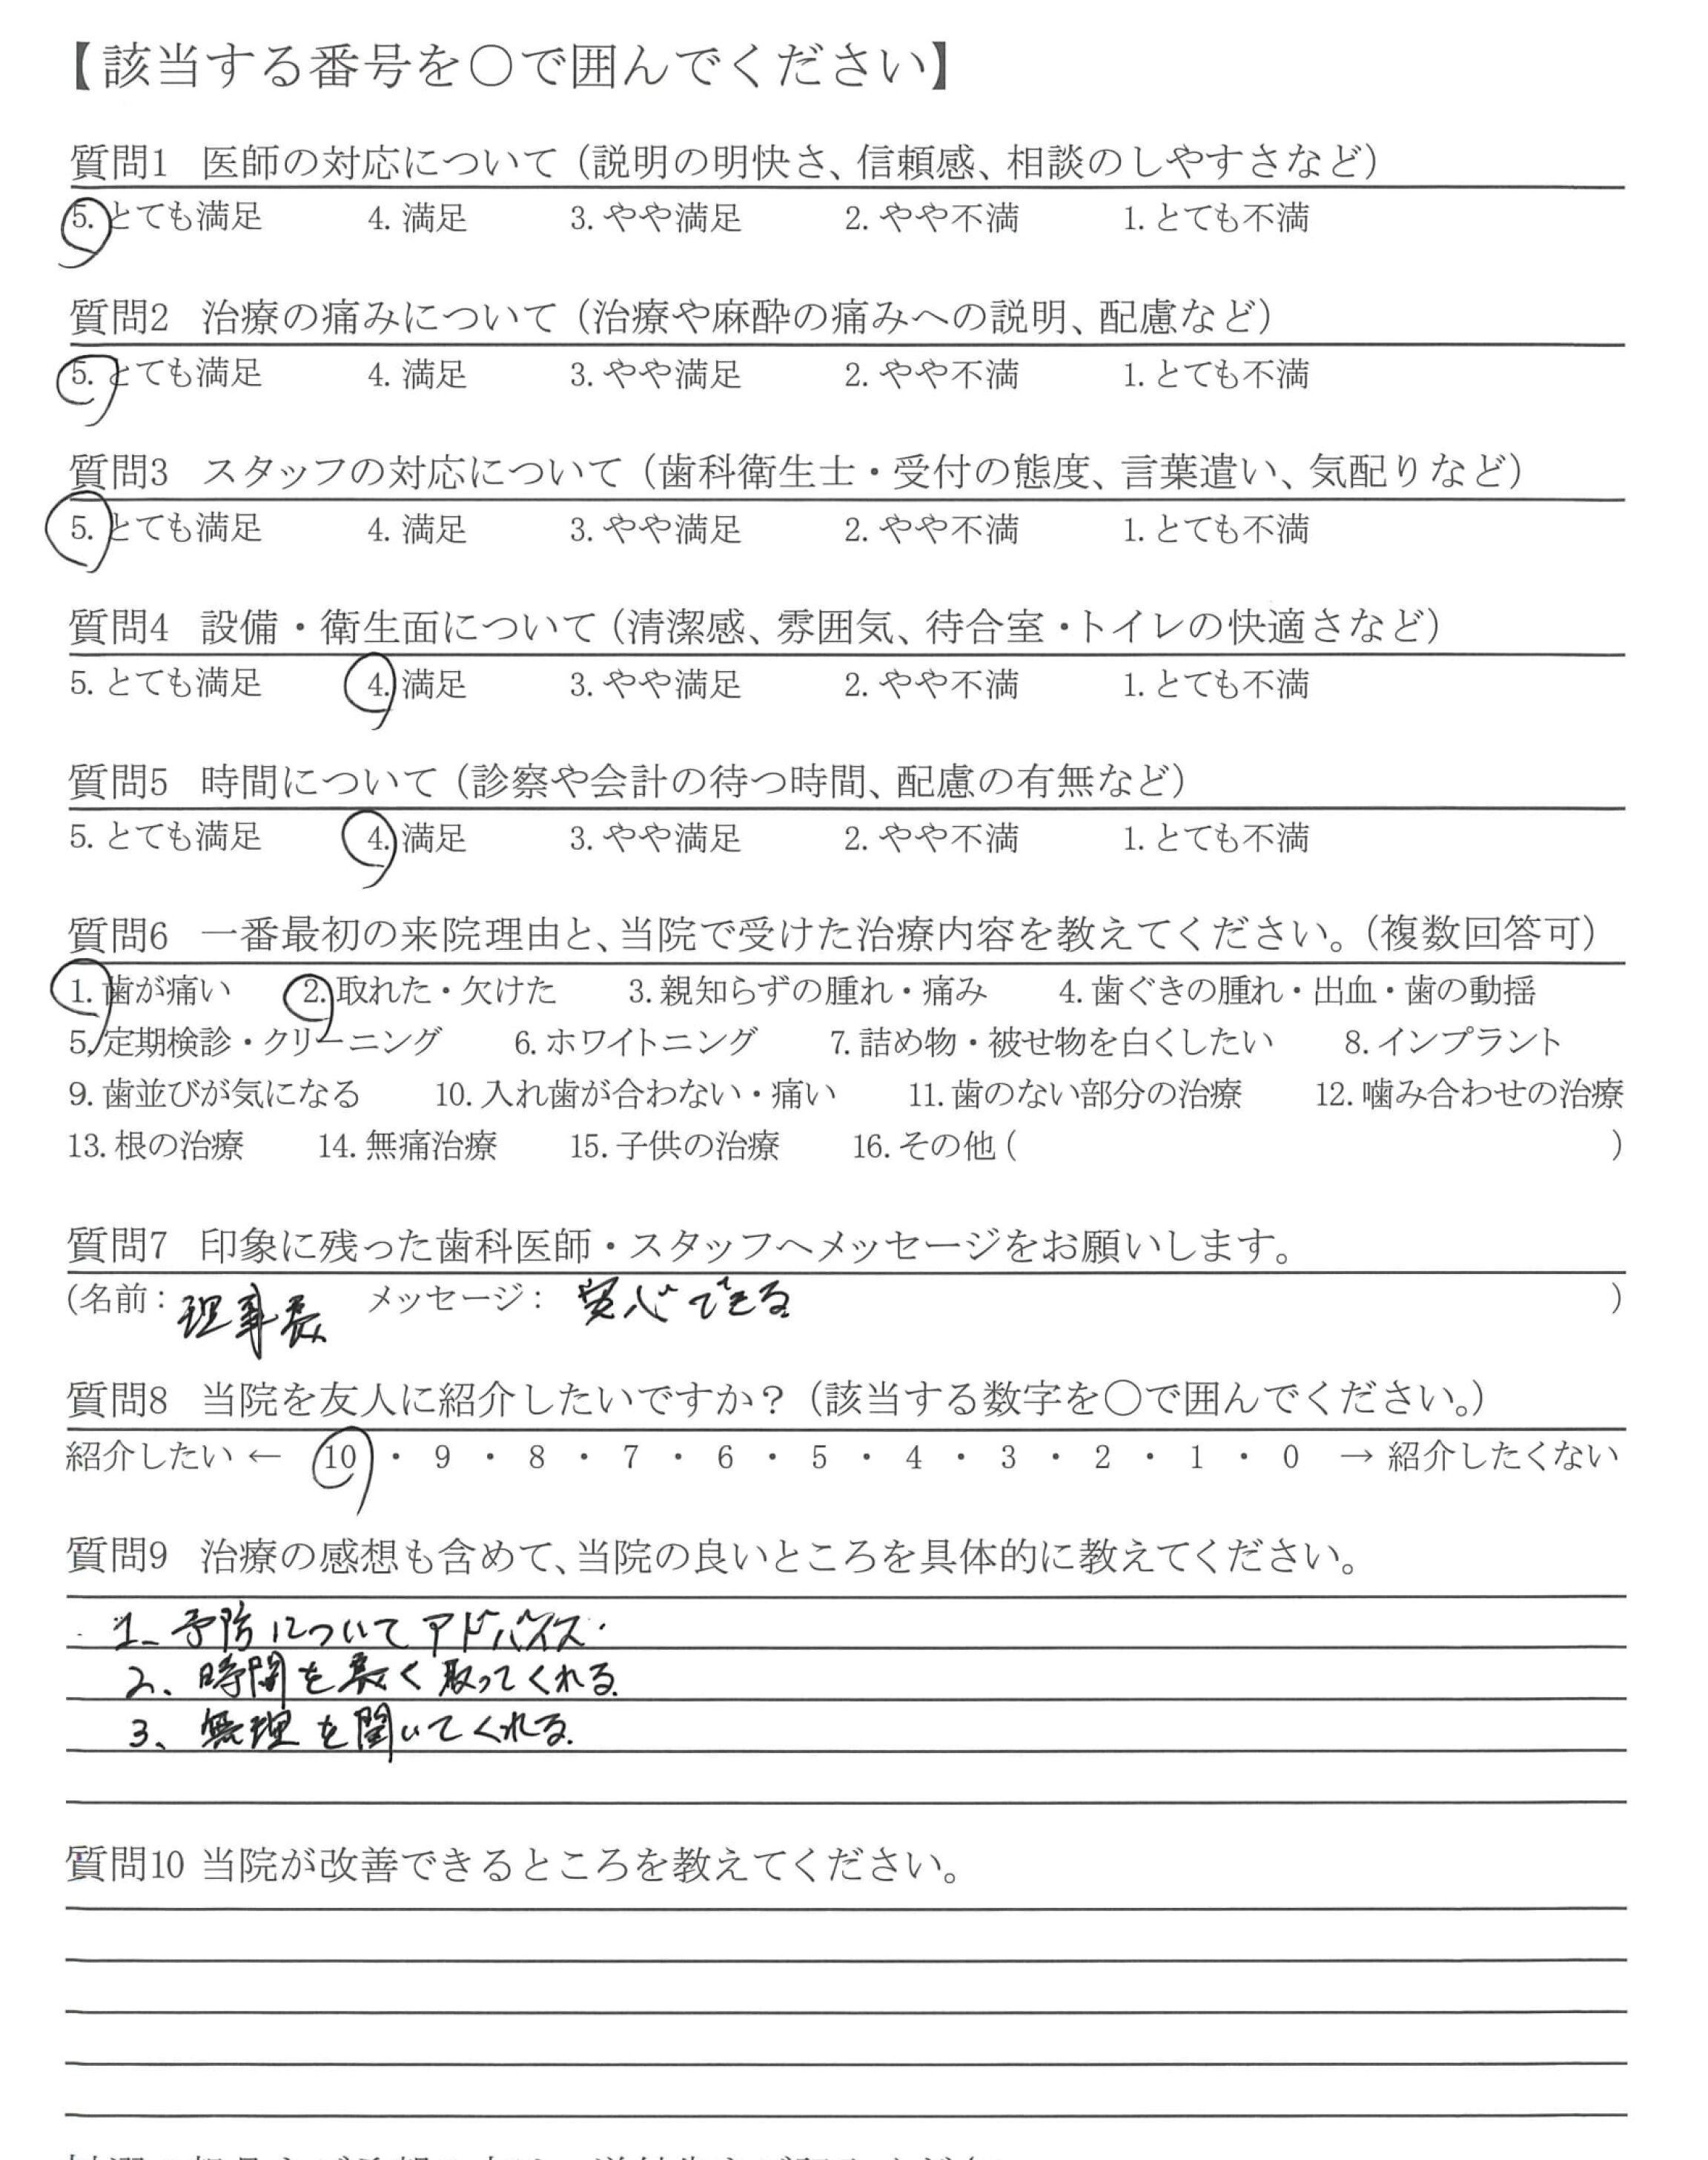 【該当する番号を○で囲んでください】
質問1 医師の対応について（説明の明快さ、信頼感、相談のしやすさなど）
5. とても満足 4. 満足 3. やや満足 2. やや不満 1. とても不満
質問2 治療の痛みについて（治療や麻酔の痛みへの説明、配慮など）
5. とても満足 4. 満足 3. やや満足 2. やや不満 1. とても不満
質問3 スタッフの対応について（歯科衛生士・受付の態度、言葉遣い、気配りなど）
5. とても満足 4. 満足 3. やや満足 2. やや不満 1. とても不満
質問4 設備・衛生面について（清潔感、雰囲気、待合室・トイレの快適さなど）
5. とても満足 4. 満足 3. やや満足 2. やや不満 1. とても不満
質問5 時間について（診察や会計の待つ時間、配慮の有無など）
5. とても満足 4. 満足 3. やや満足 2. やや不満 1. とても不満
質問6 一番最初の来院理由と、当院で受けた治療内容を教えてください。（複数回答可）
1. 歯が痛い 2. 取れた・欠けた 3. 親知らずの腫れ・痛み 4. 歯ぐきの腫れ・出血・歯の動揺
5. 定期検診・クリーニング 6. ホワイトニング 7. 詰め物・被せ物を白くしたい 8. インプラント
9. 歯並びが気になる 10. 入れ歯が合わない・痛い 11. 歯のない部分の治療 12. 噛み合わせの治療
13. 根の治療 14. 無痛治療 15. 子供の治療 16. その他（ ）
質問7 印象に残った歯科医師・スタッフへメッセージをお願いします。
（名前： 理事長 メッセージ： 安心できる ）
質問8 当院を友人に紹介したいですか？（該当する数字を○で囲んでください。）
紹介したい ← 10 ・ 9 ・ 8 ・ 7 ・ 6 ・ 5 ・ 4 ・ 3 ・ 2 ・ 1 ・ 0 → 紹介したくない
質問9 治療の感想も含めて、当院の良いところを具体的に教えてください。
1. 予防についてアドバイス.
2、時間を長く取ってくれる.
3、無理を聞いてくれる.
質問10 当院が改善できるところを教えてください。